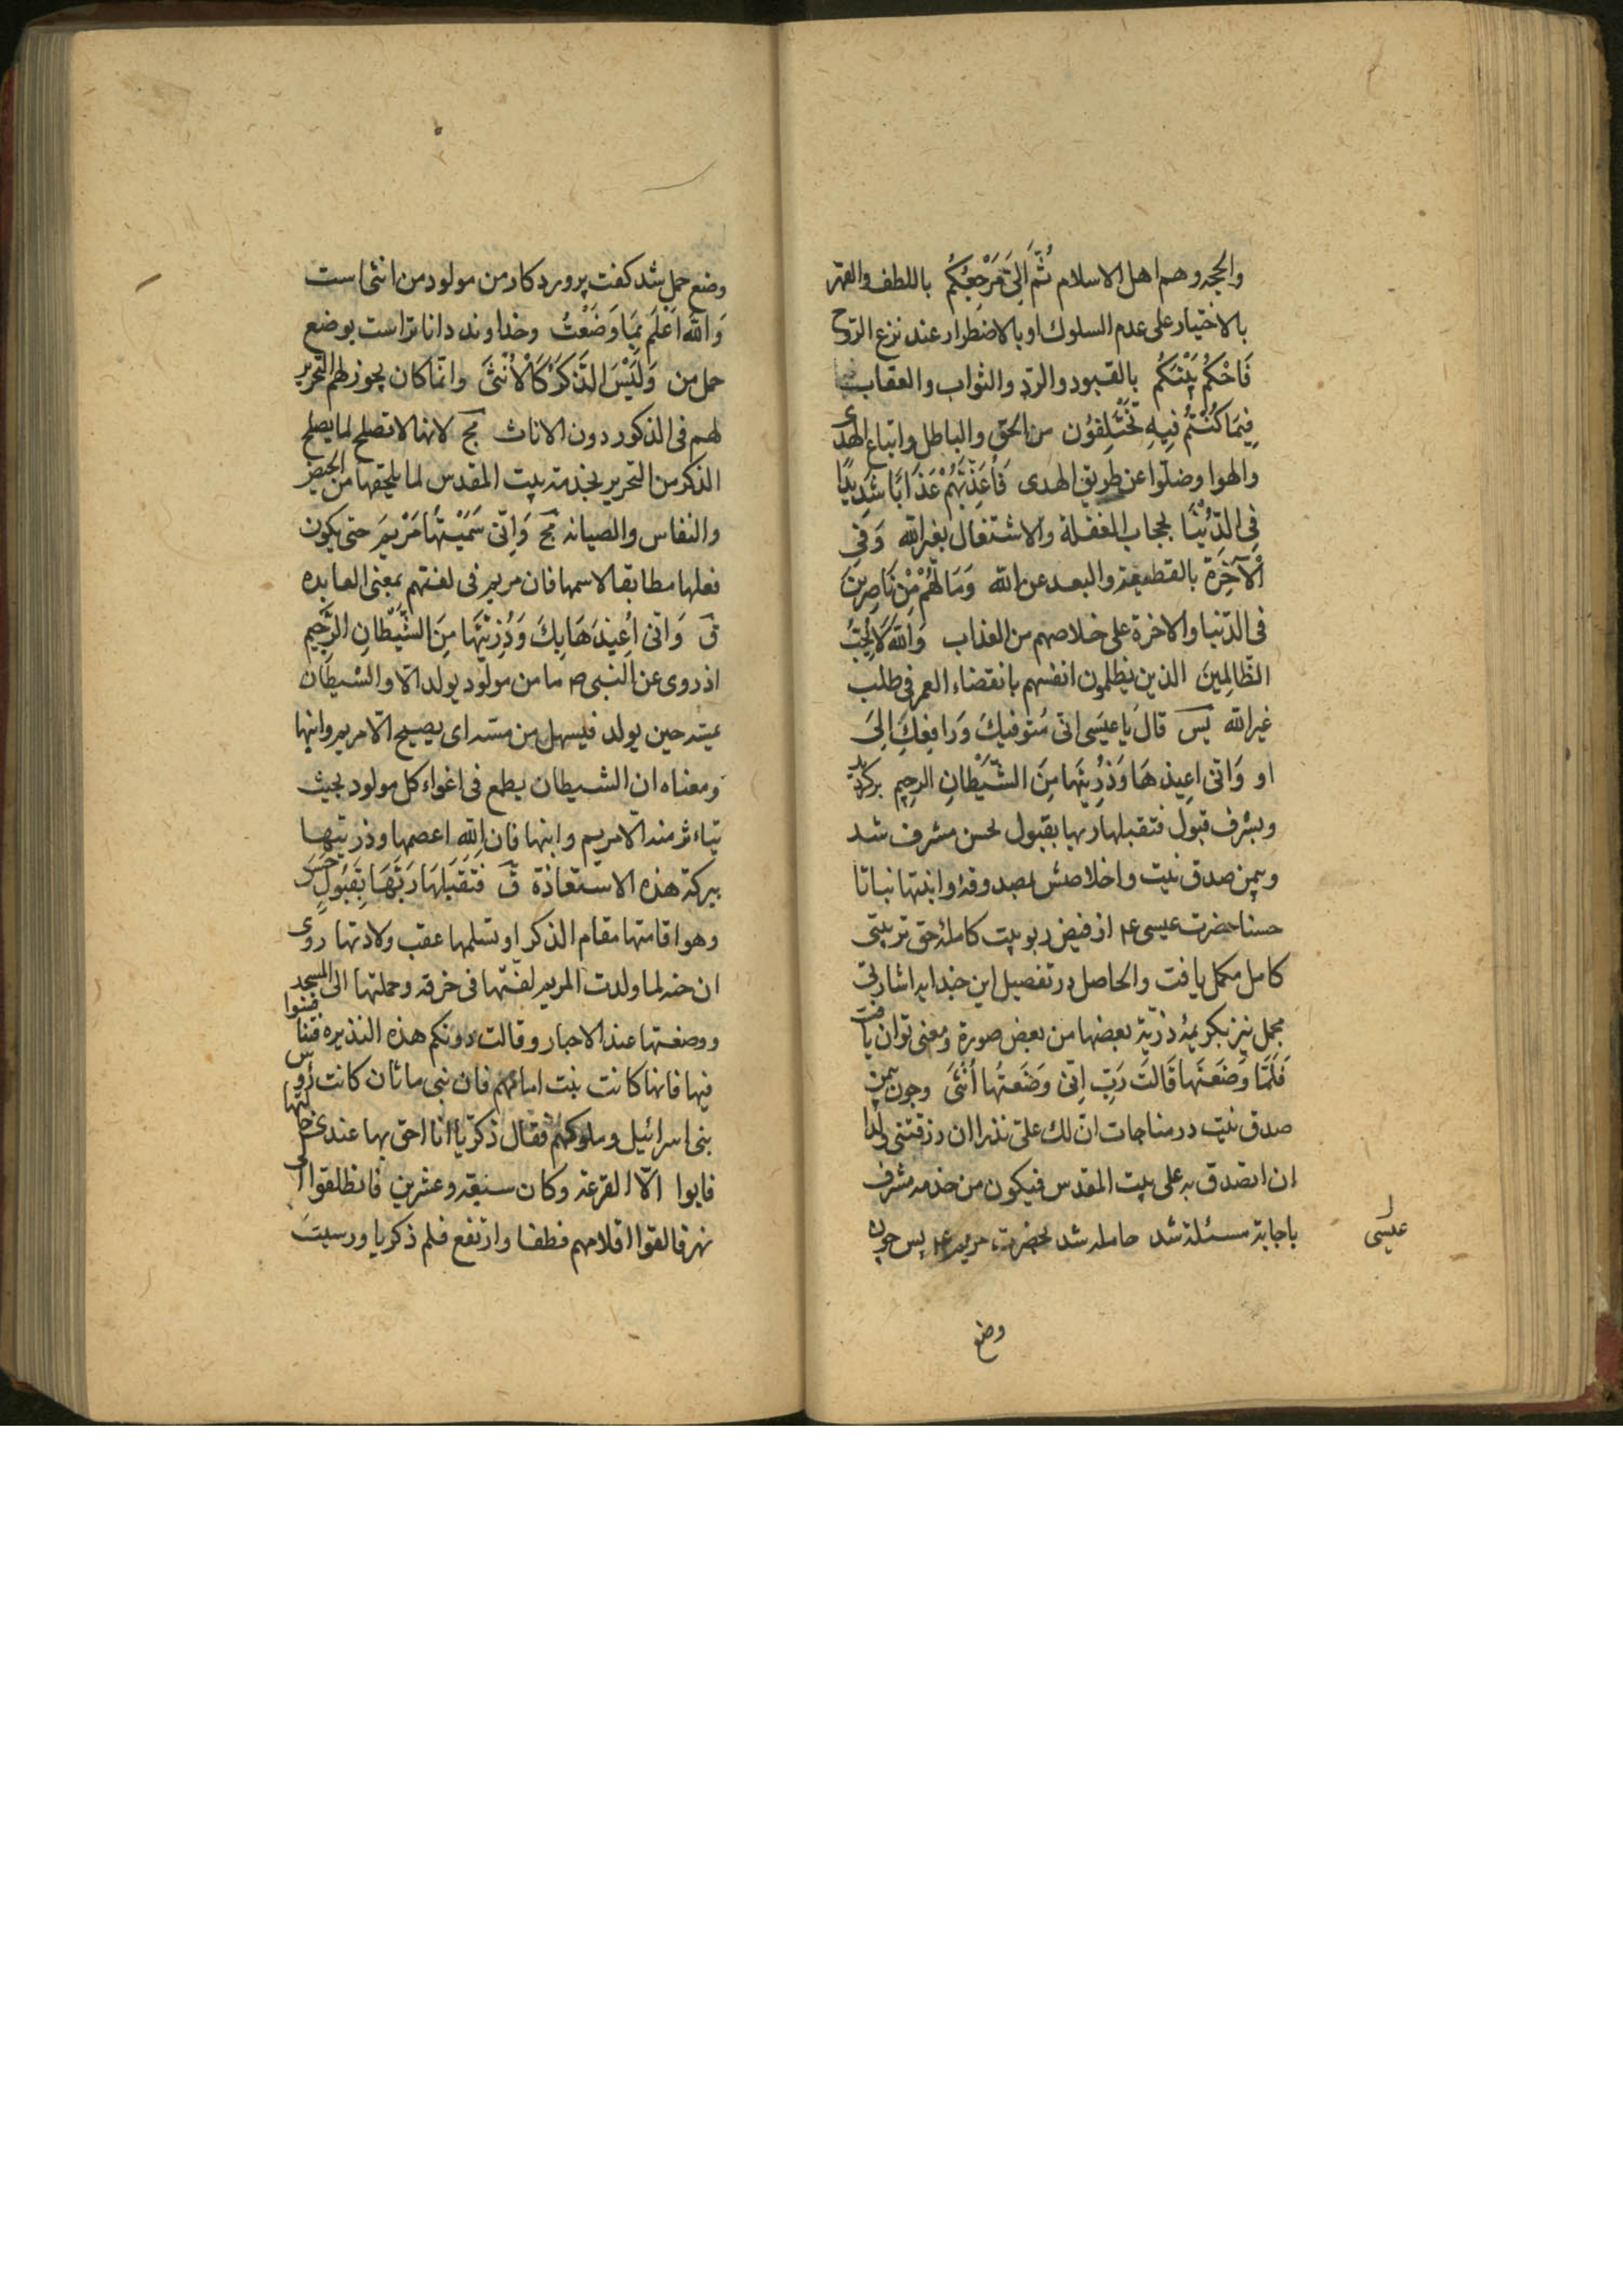 والحجه وهم اهل الاسلام ثُمَّ اِلَیَّ مَرْجِعُكُمْ باللطف والقهر
بالاختیار علی عدم السلوك او بالاضطرار عند نزع الروح
فَاَحْكُمُ بَیْنَكُمْ بالقبود والرّد والثواب والعقاب
فِیمَا كُنْتُمْ فِیهِ تَخْتَلِفُون من الحق والباطل واتباع الهدی
والهوا وضلّوا عن طریق الهدی فَاُعَذِّبُهُمْ عَذَابًا شَدِیدًا
فِی الدُّنْیَا بحجاب الغفلة والاشتغال بغیر الله وَفِی
الْآخِرَةِ بالقطیعة والبعد عن الله وَمَا لَهُمْ مِنْ نَاصِرِینَ
فی الدّنیا والاخرة علی خلاصهم من العذاب وَاللهُ لَا یُحِبُّ
الظَّالِمِینَ الذین یظلمون انفسهم بانقضاء العمر فی طلب
غیر الله پس قالَ یا عیسَی انی مُتوفیكَ وَرافِعكَ اِلیَ
او وَانی اعِیذ هَا وَذُرِیتَها مِنَ الشَّیْطانِ الرجِیم بركردید
وبشرف قبول فتقبلها ربها بقبول لحسن مشرف شد
وبیمن صدق نیت واخلاصش بصدوقهٔ وانبتها نباتا
حسنا حضرت عیسی ع م از فیض ربوبیت كاملهٔ حق تربیتی
كامل مكمل یافت والحاصل در تفصیل این جندایه اشارتی
مجمل نیز بكریمهٔ ذریّة بعضها من بعض صورة ومعنی توان یافت
فَلَمَّا وَضَعَتها قَالَت رَبِّ اِنّی وَضَعتُها اُنْثیَ وجون بیمن
صدق نیت در مناجات انّ لك علیّ نذرا ان رزقتنی ولدا
ان اتصدق به علی بیت المقدس فیكون من خدمه مشرف
باجابة مسئلة شد حامله شد بحضرت مریم ع م پس جون
عیسی
وضع
وضع حمل شد كفت پروردكار من مولود من انثی است
وَاللهُ اَعْلَمُ بِمَا وَضَعْتُ وخداوند داناتر است بوضع
حمل من وَلَیْسَ الذَّكَرُ كَالْاُنْثیَ وانّما كان یجوز لهم التحریر
لهم فی الذكور دون الاناث مج لانها لا تصلح لما یصلح
الذكر من التحریر بخدمة بیت المقدس لما یلحقها من الحیض
والنفاس والصیانه مج وَاِنّی سَمَّیْتُهَا مَرْیَمَ حتی یكون
فعلها مطابقا لاسمها فان مریم فی لغتهم بمعنی العابده
ق وَانی اُعِیذهَا بِكَ وَذُرِیتَهَا مِنَ الشَّیْطانِ الرَّجِیم
اذ روی عن النبی ص ما من مولود یولد الا والشیطان
یمسّه حین یولد فیستهل من مسّه ای یصیح الا مریم وابنها
ومعناه ان الشیطان یطمع فی اغواء كل مولود بحیث
یتاءثر منه الا مریم وابنها فان الله اعصمها وذریتها
ببركة هذه الاستعاذة ق فَتَقَبَلهَا رَبُّهَا بِقَبُولٍ حَسَن
وهو اقامتها مقام الذكر او تسلمها عقب ولادتها روی
ان حنه لما ولدت المریم لفتها فی خرقه وحملتها الی المسجد
ووضعتها عند الاحبار وقالت دونكم هذه النذیره فتنافسوا
فیها فانها كانت بنت امامهم فان بنی ماثان كانت رؤس
بنی اسرائیل وملوكهم فقال ذكریّا انا احق بها عندی خالتها
فابوا الّا القرعة وكان سبعة وعشرین فانطلقوا الی
نهر فالقوا اقلامهم فطفا وارتفع قلم ذكریا ورسبت